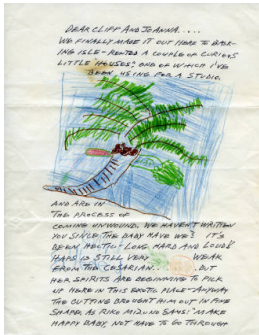 DEAR CLIFF AND JOANNA.....
WE FINALLY MADE IT OUT HERE TO
ING ISLE - RENTED A COUPLE OF CURIOUS
LITTLE "HOUSES", ONE OF WHICH I'VE
BEEN USING FOR A STUDIO
AND ARE IN
THE PROCESS OF
COMING UNWOUND. WE HAVEN'T WRITTEN
YOU SINCE THE BABY HAVE WE? IT'S
BEEN HECTIC - LONG HARD AND LOUD!
IS STILL VERY WEAK
FROM THE CESARIAN... BUT
HER SPIRITS ARE BEGINNING TO PICK
UP HERE IN THIS EXOTIC PLACE - ANYWAY
THE CUTTING BROUGHT HIM OUT IN FINE
SHAPE, AS MIKE SAYS: MAKE
HAPPY BABY, NOT HAVE TO GO THROUGH